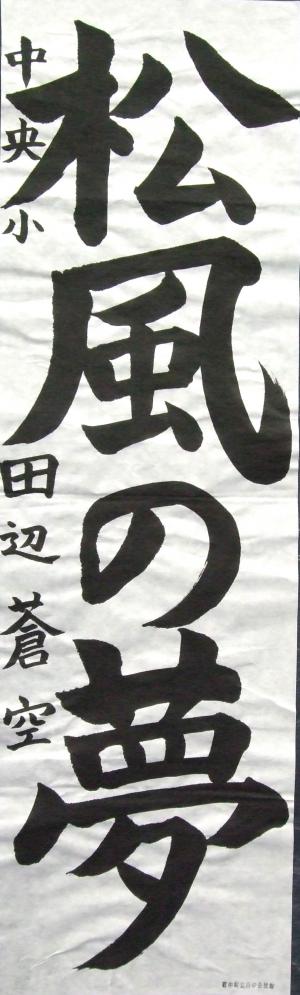 松風の夢
中央小
田辺蒼空